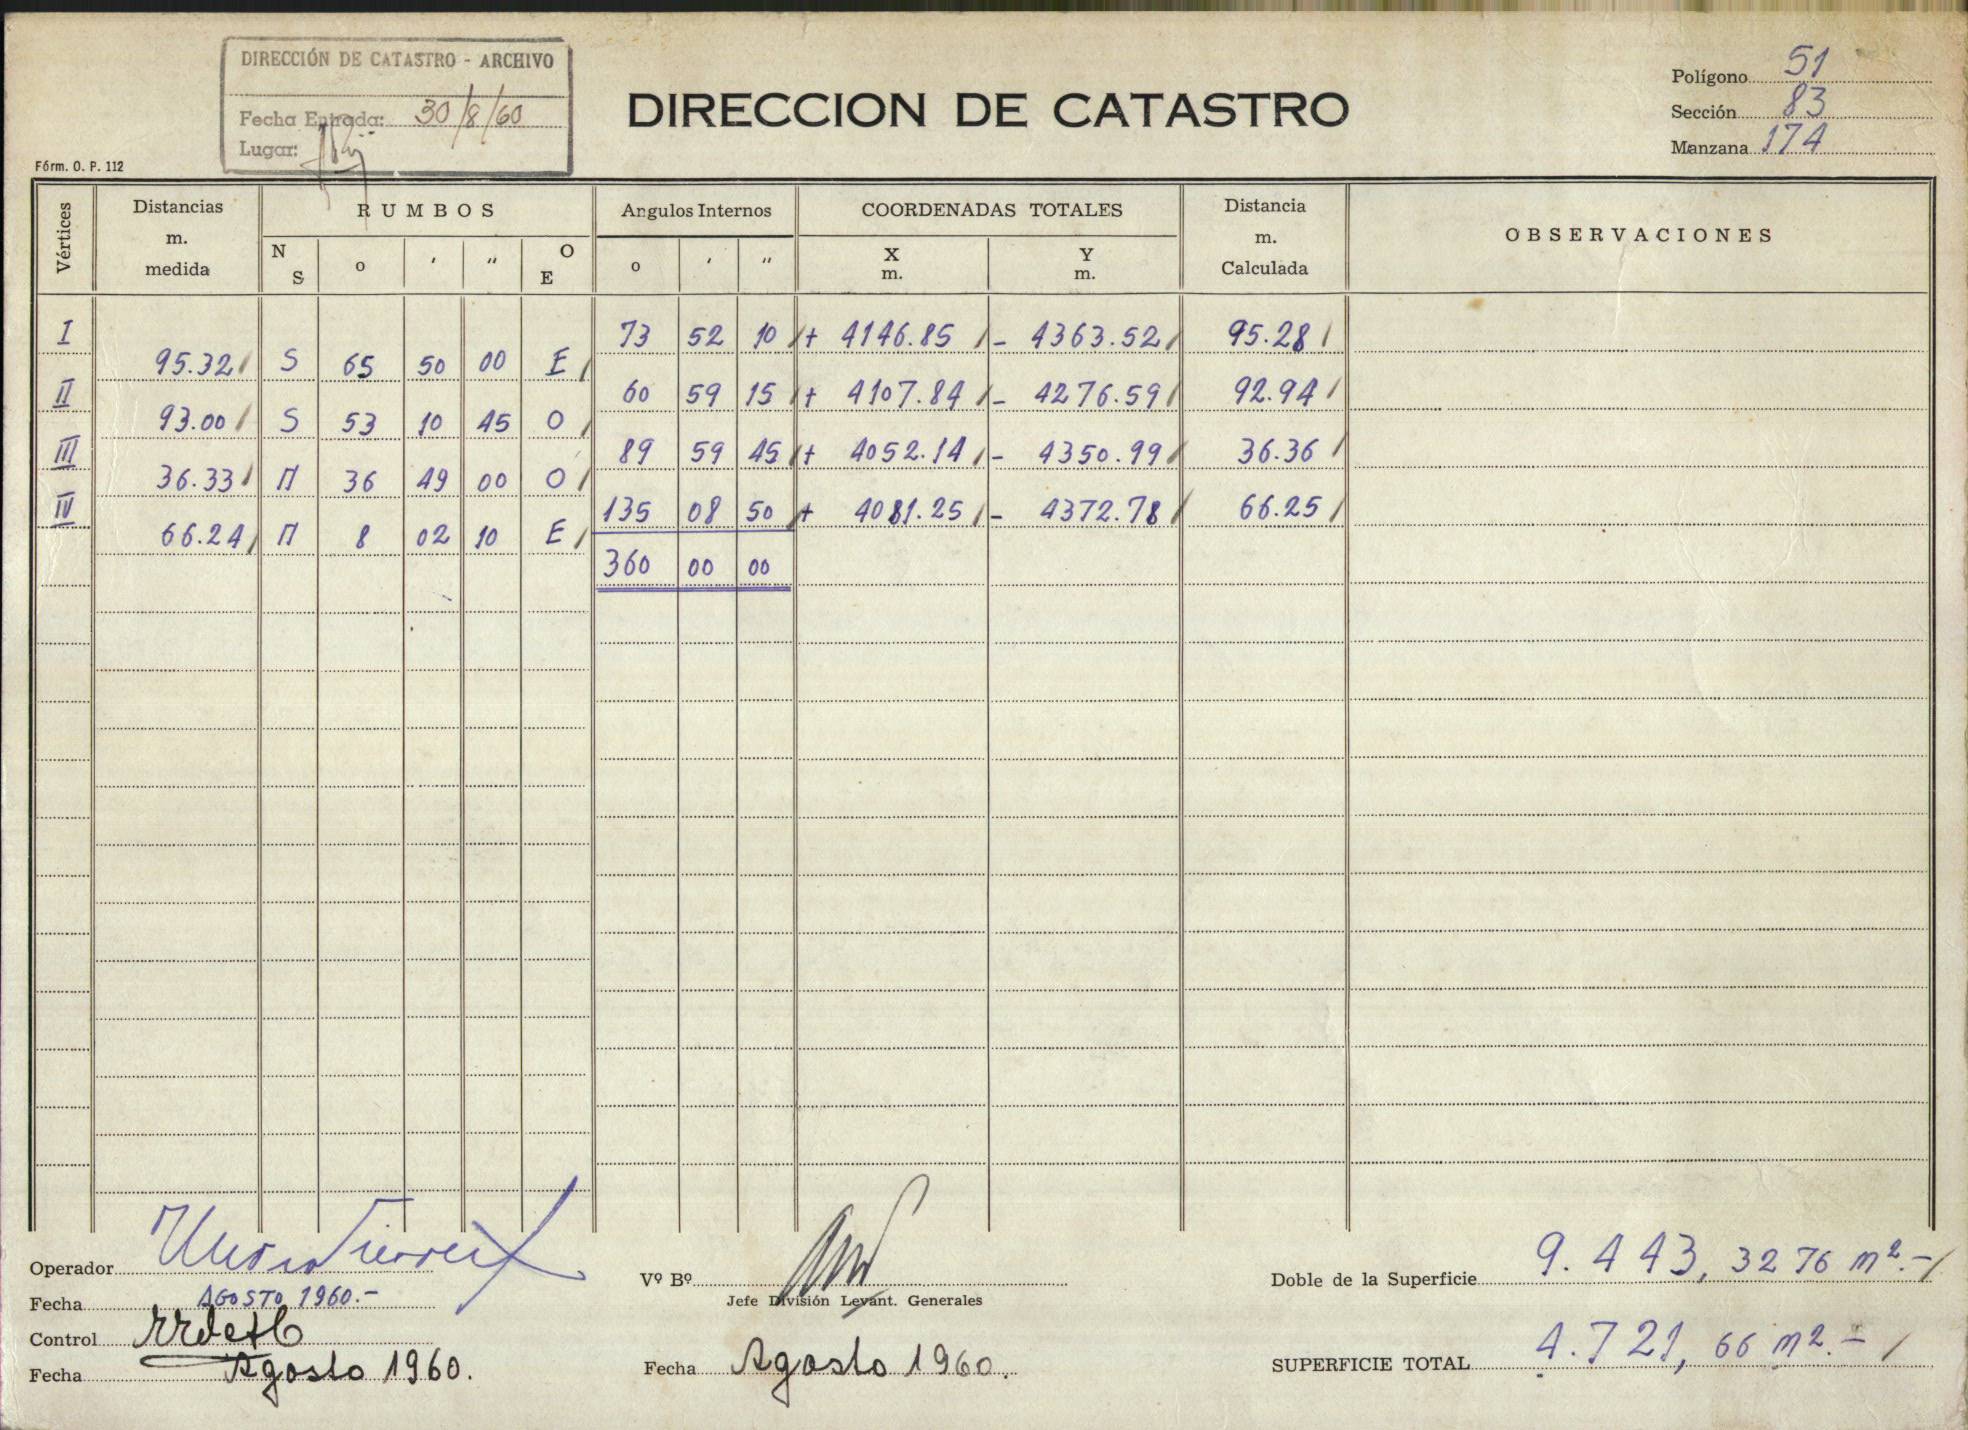 DIRECCIÓN DE CATASTRO - ARCHIVO
Fecha Entrada: 30/8/60
Lugar:
Fórm. O. P. 112
DIRECCION DE CATASTRO
Polígono 51
Sección 83
Manzana 174
Vértices Distancias m. medida RUMBOS Angulos Internos COORDENADAS TOTALES Distancia m. Calculada OBSERVACIONES
N S o ′ ″ O E o ′ ″ X m. Y m.
I 73 52 10 + 4146.85 - 4363.52 95.28
95.32 S 65 50 00 E
II 60 59 15 + 4107.84 - 4276.59 92.94
93.00 S 53 10 45 O
III 89 59 45 + 4052.14 - 4350.99 36.36
36.33 N 36 49 00 O
IV 135 08 50 + 4081.25 - 4372.78 66.25
66.24 N 8 02 10 E
360 00 00
Operador
Fecha AGOSTO 1960.-
Control
Fecha Agosto 1960.
Vº Bº
Jefe División Levant. Generales
Fecha Agosto 1960.
Doble de la Superficie 9.443,3276 m².-
SUPERFICIE TOTAL 4.721,66 m².-